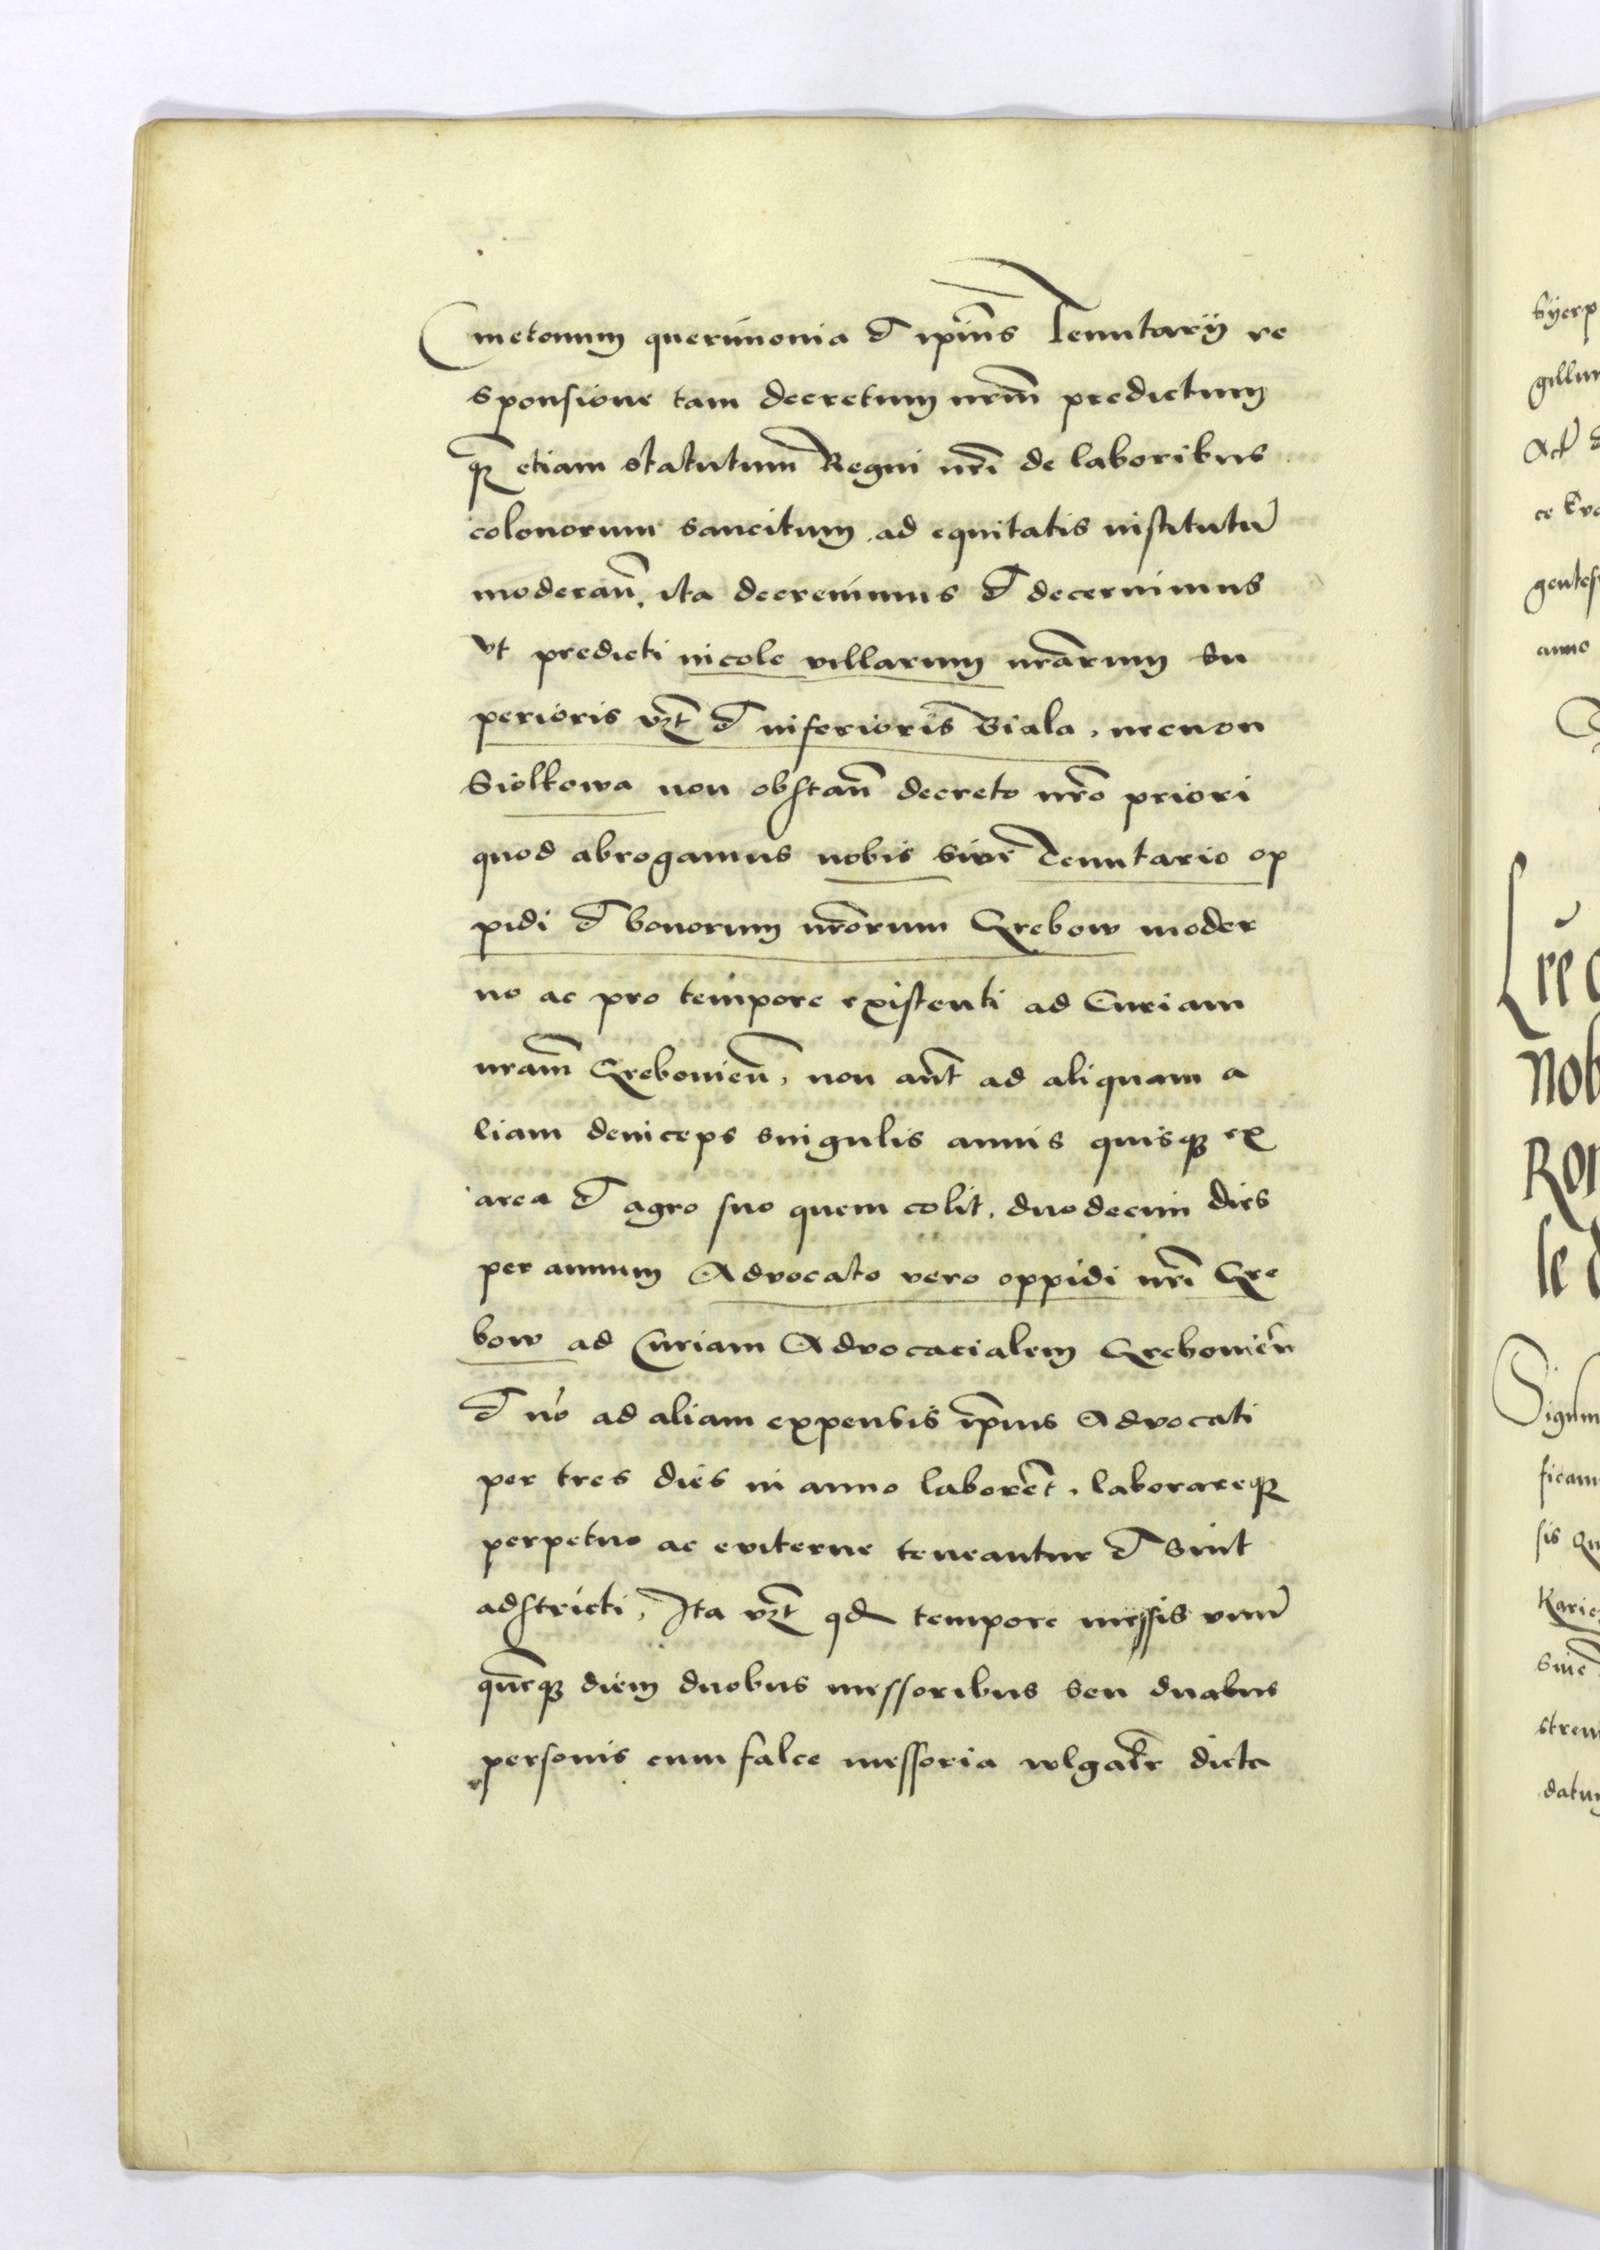 Cmetonum querimonia et ipiūs Tenutarij re
sponsione tam decretum nr̄m predictum
q̄ꝫ etiam statutum Regni nr̄i de laboribus
colonorum sancitum ad equitatis institutū
moderan̄. ita decreuimus et decernimus
vt predicti incole villarum nr̄arum Su
perioris vꝫt et inferioris Biala, necnon
Siolkowa non obstan̄ decreto nr̄o priori
quod abrogamus nobis siue Tenutario op
pidi et bonorum nr̄orum Grebow moder
no ac pro tempore existenti ad Curiam
nr̄am Grebouien̄, non an̄t ad aliquam a
liam deniceps singulis annis quisqꝫ ex
area et agro suo quem colit, duodecim dies
per annum Advocato vero oppidi nr̄i Gre
bow ad Curiam Advocacialem Grebouien̄
et nō ad aliam expensis ip̄ius Advocati
per tres dies in anno laborēt, laborareqꝫ
perpetuo ac eviterne teneantur et sint
adstricti, Ita vꝫt qd tempore messis vnū
quēqꝫ diem duobus messoribus seu duabus
personis cum falce messoria wlgatr̄ dicta
Syerp
gillum
Act
gentes
anno
Lr̄e
Nob
Ro
le
Signum
ficam
sis
Karie
siue
stren
datum